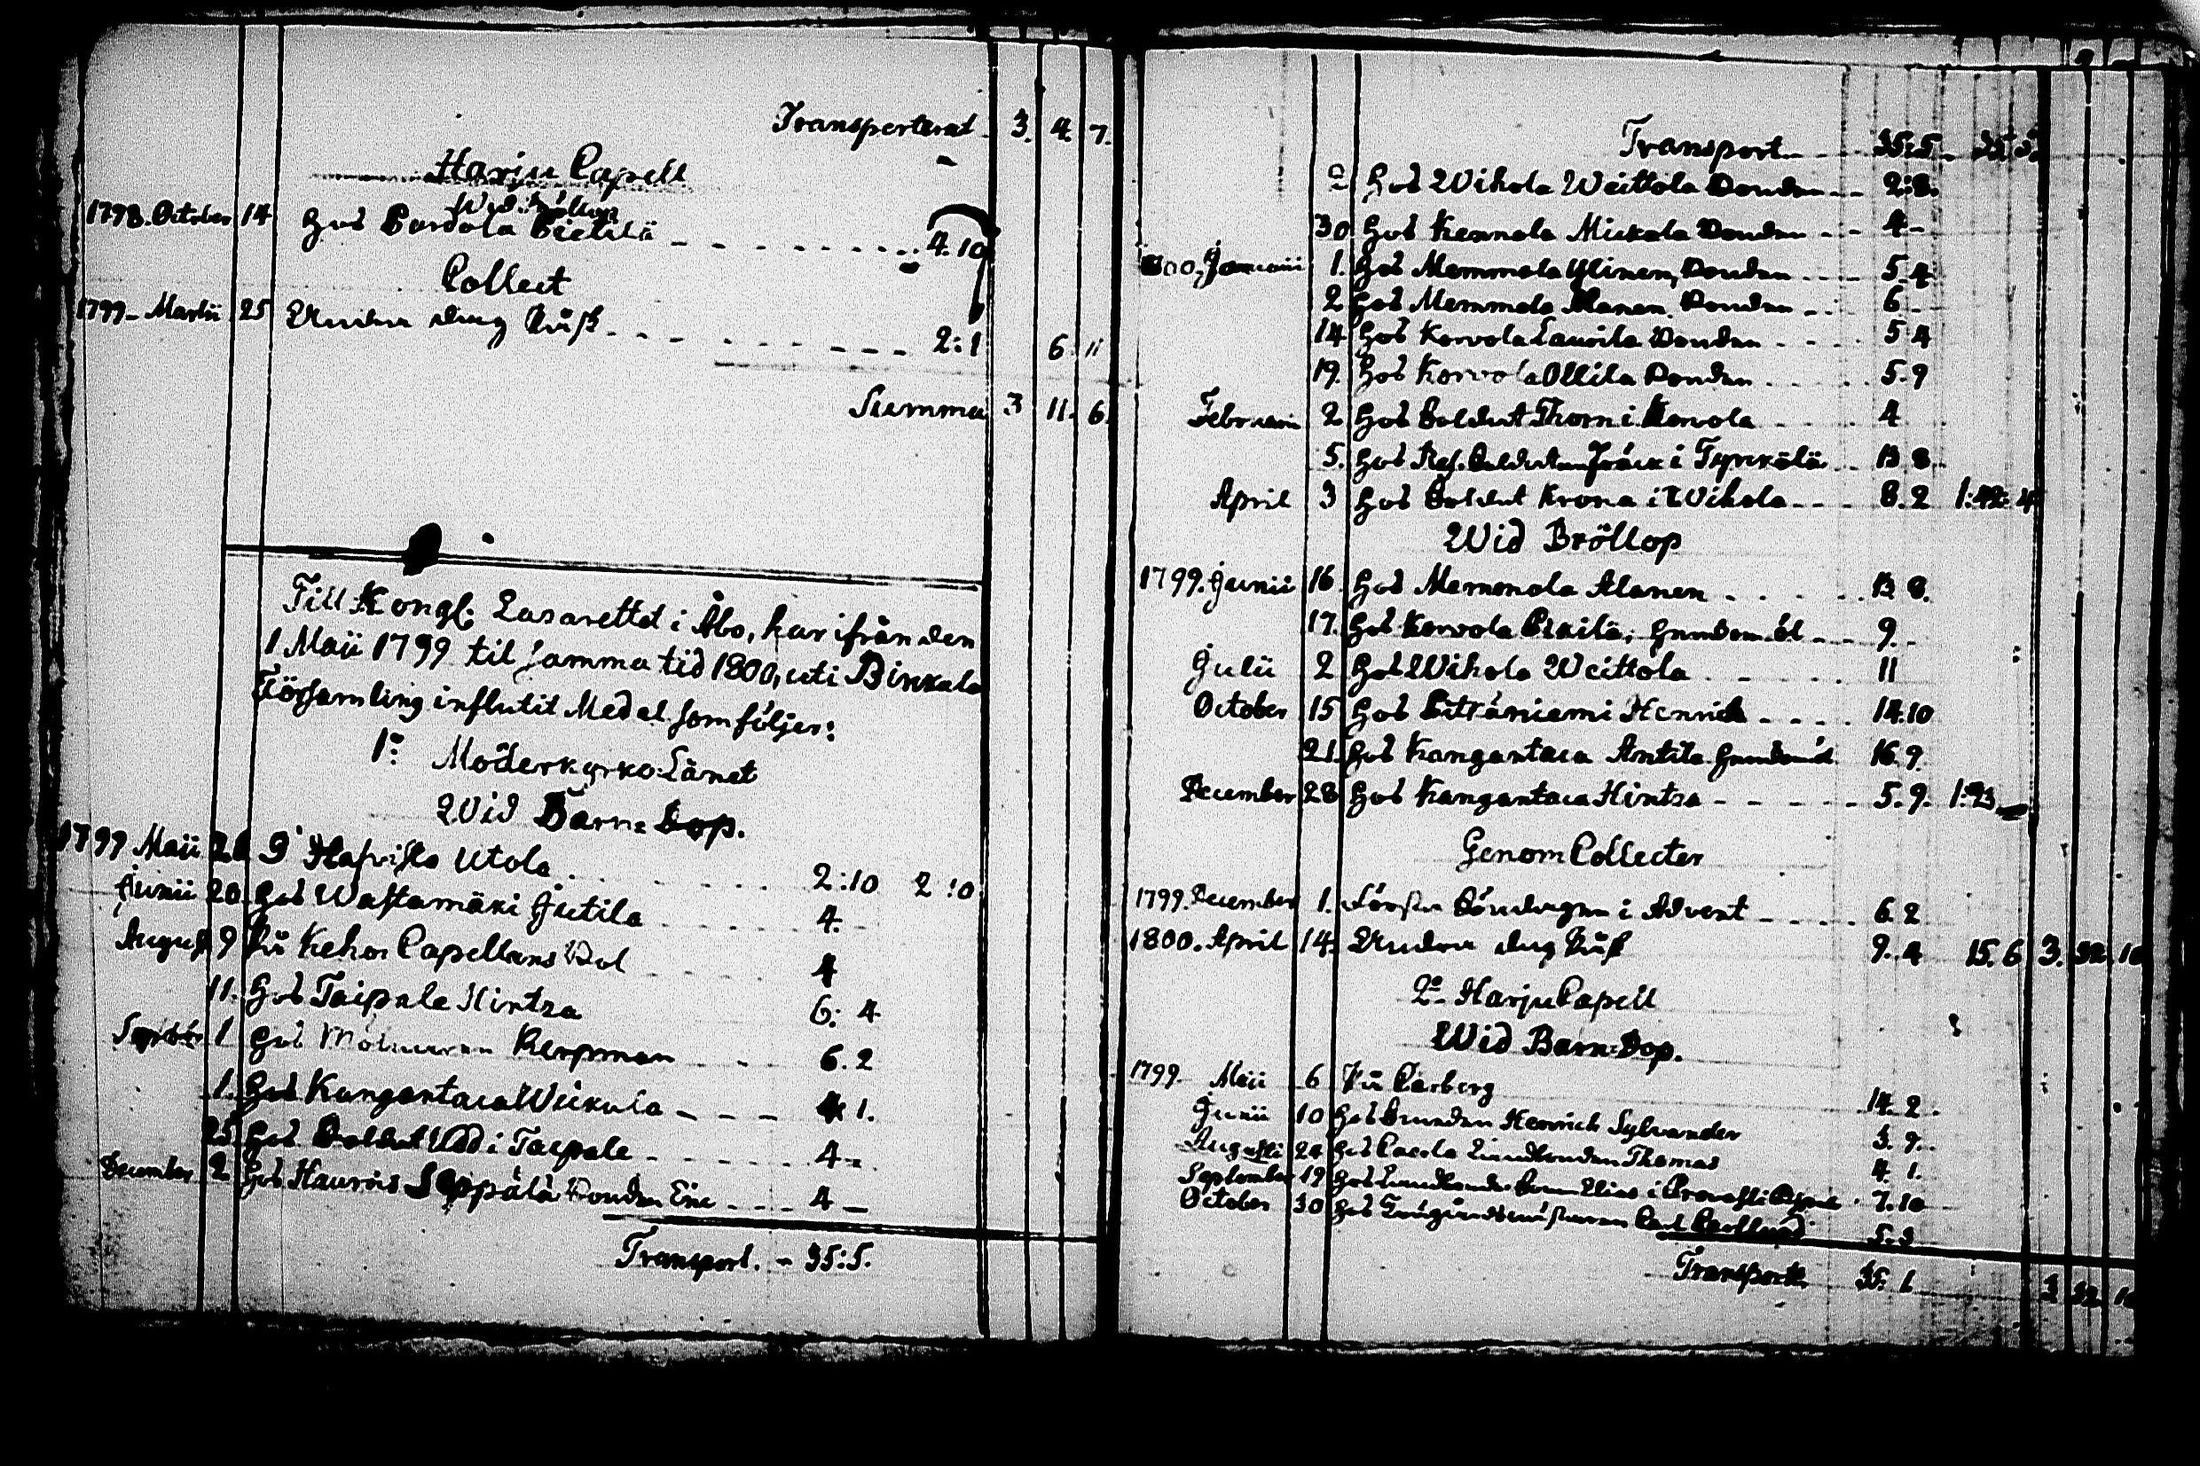 Transporterat 3. 4. 7.
Harju Capell
Wid Bröllop
1798. October 14 Hos Pietilä 4. 10
Collect
1799 Martii 25 Andra dag Påsk 2:1 6 11
Summa 3 11. 6.
Till Kongl: Lasarettet i Åbo, har ifrån den
1 Maii 1799 til samma tid 1800, uti Birkala
Församling influtit Medel som följer:
1:o Moderkyrko-Länet
Wid Barn-Dop.
1799 Maii Utola 2:10 2:10
Junii 20 Hos Wastamäki Jutila 4.
August 9 På Keho Capellans Bol 4
11. Hos Taipale Hintsa 6: 4
Septbr 1 Hos 6. 2
1. Hos Kangantaca Wickula 4 1.
25 Hos Soldat i Taipale 4
December 2 Hos Seppälä Bonden Eric 4
Transport. 35:5.
Transport 35:5
2 Hos Wihola Weittola Bonden 2:8.
30 Hos Kennola Mickola Bonden 4
1800, Januarii 1. Hos Memmola Ylinen, Bonden 5 4
2 Hos Memmola Alanen Bonden 6
14 Hos Korvola Laurila Bonden 5 4
19. Hos Korvola Ollila Bonden 5. 9
Februarii 2 Hos Soldat Thorn i Korvola 4
5. Hos i Tyrkölä 13 8
April 3 Hos Soldat Krona i Wihola 8. 2 1:42. 4
Wid Bröllop
1799. Junii 16 Hos Memmola Alanen 13 8.
17. Hos Korvola 9.
Julii 2 Hos Wihola Weittola 11
October 15 Hos Pitkäniemi Henrich 14.10
21. Hos Kangantaca Anttila 16. 9
December 28 Hos Kangantaca Hintsa 5. 9.
Genom Collecter
1799. December 1. Första Söndagen i Advent 6. 2
1800. April 14. Andra dag Påsk 9. 4 15. 6 3. 32 10
2:o Harju Capell
Wid Barn-Dop.
1799. Maii 6 På 14. 2
Junii 10 Hos Bonden Henrich Sylvander 3. 9.
Augusti 24 Hos Thomas 4. 1.
September 19 Hos Elias i 7. 10
October 30 Hos Carl 5. 3
Transport 35. 1 3 32 10